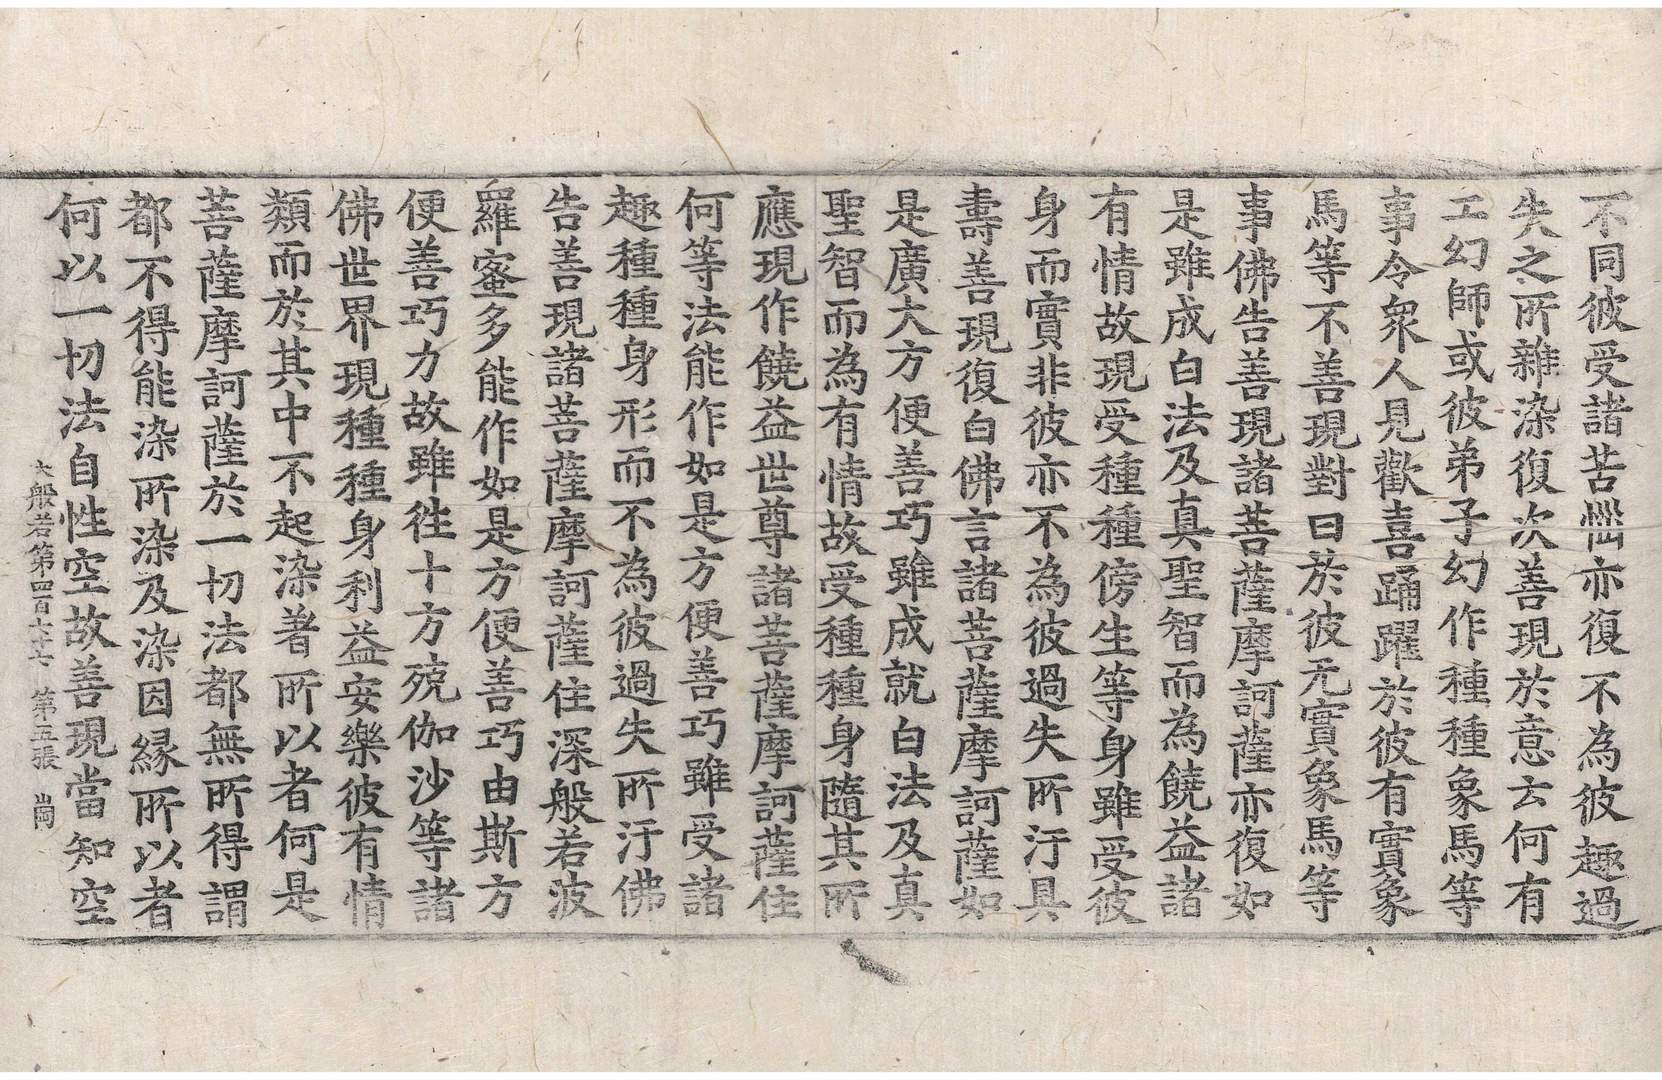 不同彼受諸苦惱亦復不為彼趣過
失之所雜染復次善現於意云何有
工幻師或彼弟子幻作種種象馬等
事令衆人見歡喜踊躍於彼有實象
馬等不善現對曰於彼无實象馬等
事佛告善現諸菩薩摩訶薩亦復如
是雖成白法及真聖智而為饒益諸
有情故現受種種傍生等身雖受彼
身而實非彼亦不為彼過失所汙具
壽善現復白佛言諸菩薩摩訶薩如
是廣大方便善巧雖成就白法及真
聖智而為有情故受種種身隨其所
應現作饒益世尊諸菩薩摩訶薩住
何等法能作如是方便善巧雖受諸
趣種種身形而不為彼過失所汙佛
告善現諸菩薩摩訶薩住深般若波
羅蜜多能作如是方便善巧由斯方
便善巧力故雖往十方殑伽沙等諸
佛世界現種種身利益安樂彼有情
類而於其中不起染著所以者何是
菩薩摩訶薩於一切法都無所得謂
都不得能染所染及染因緣所以者
何以一切法自性空故善現當知空
大般若第四百七十六 第十五張 崗